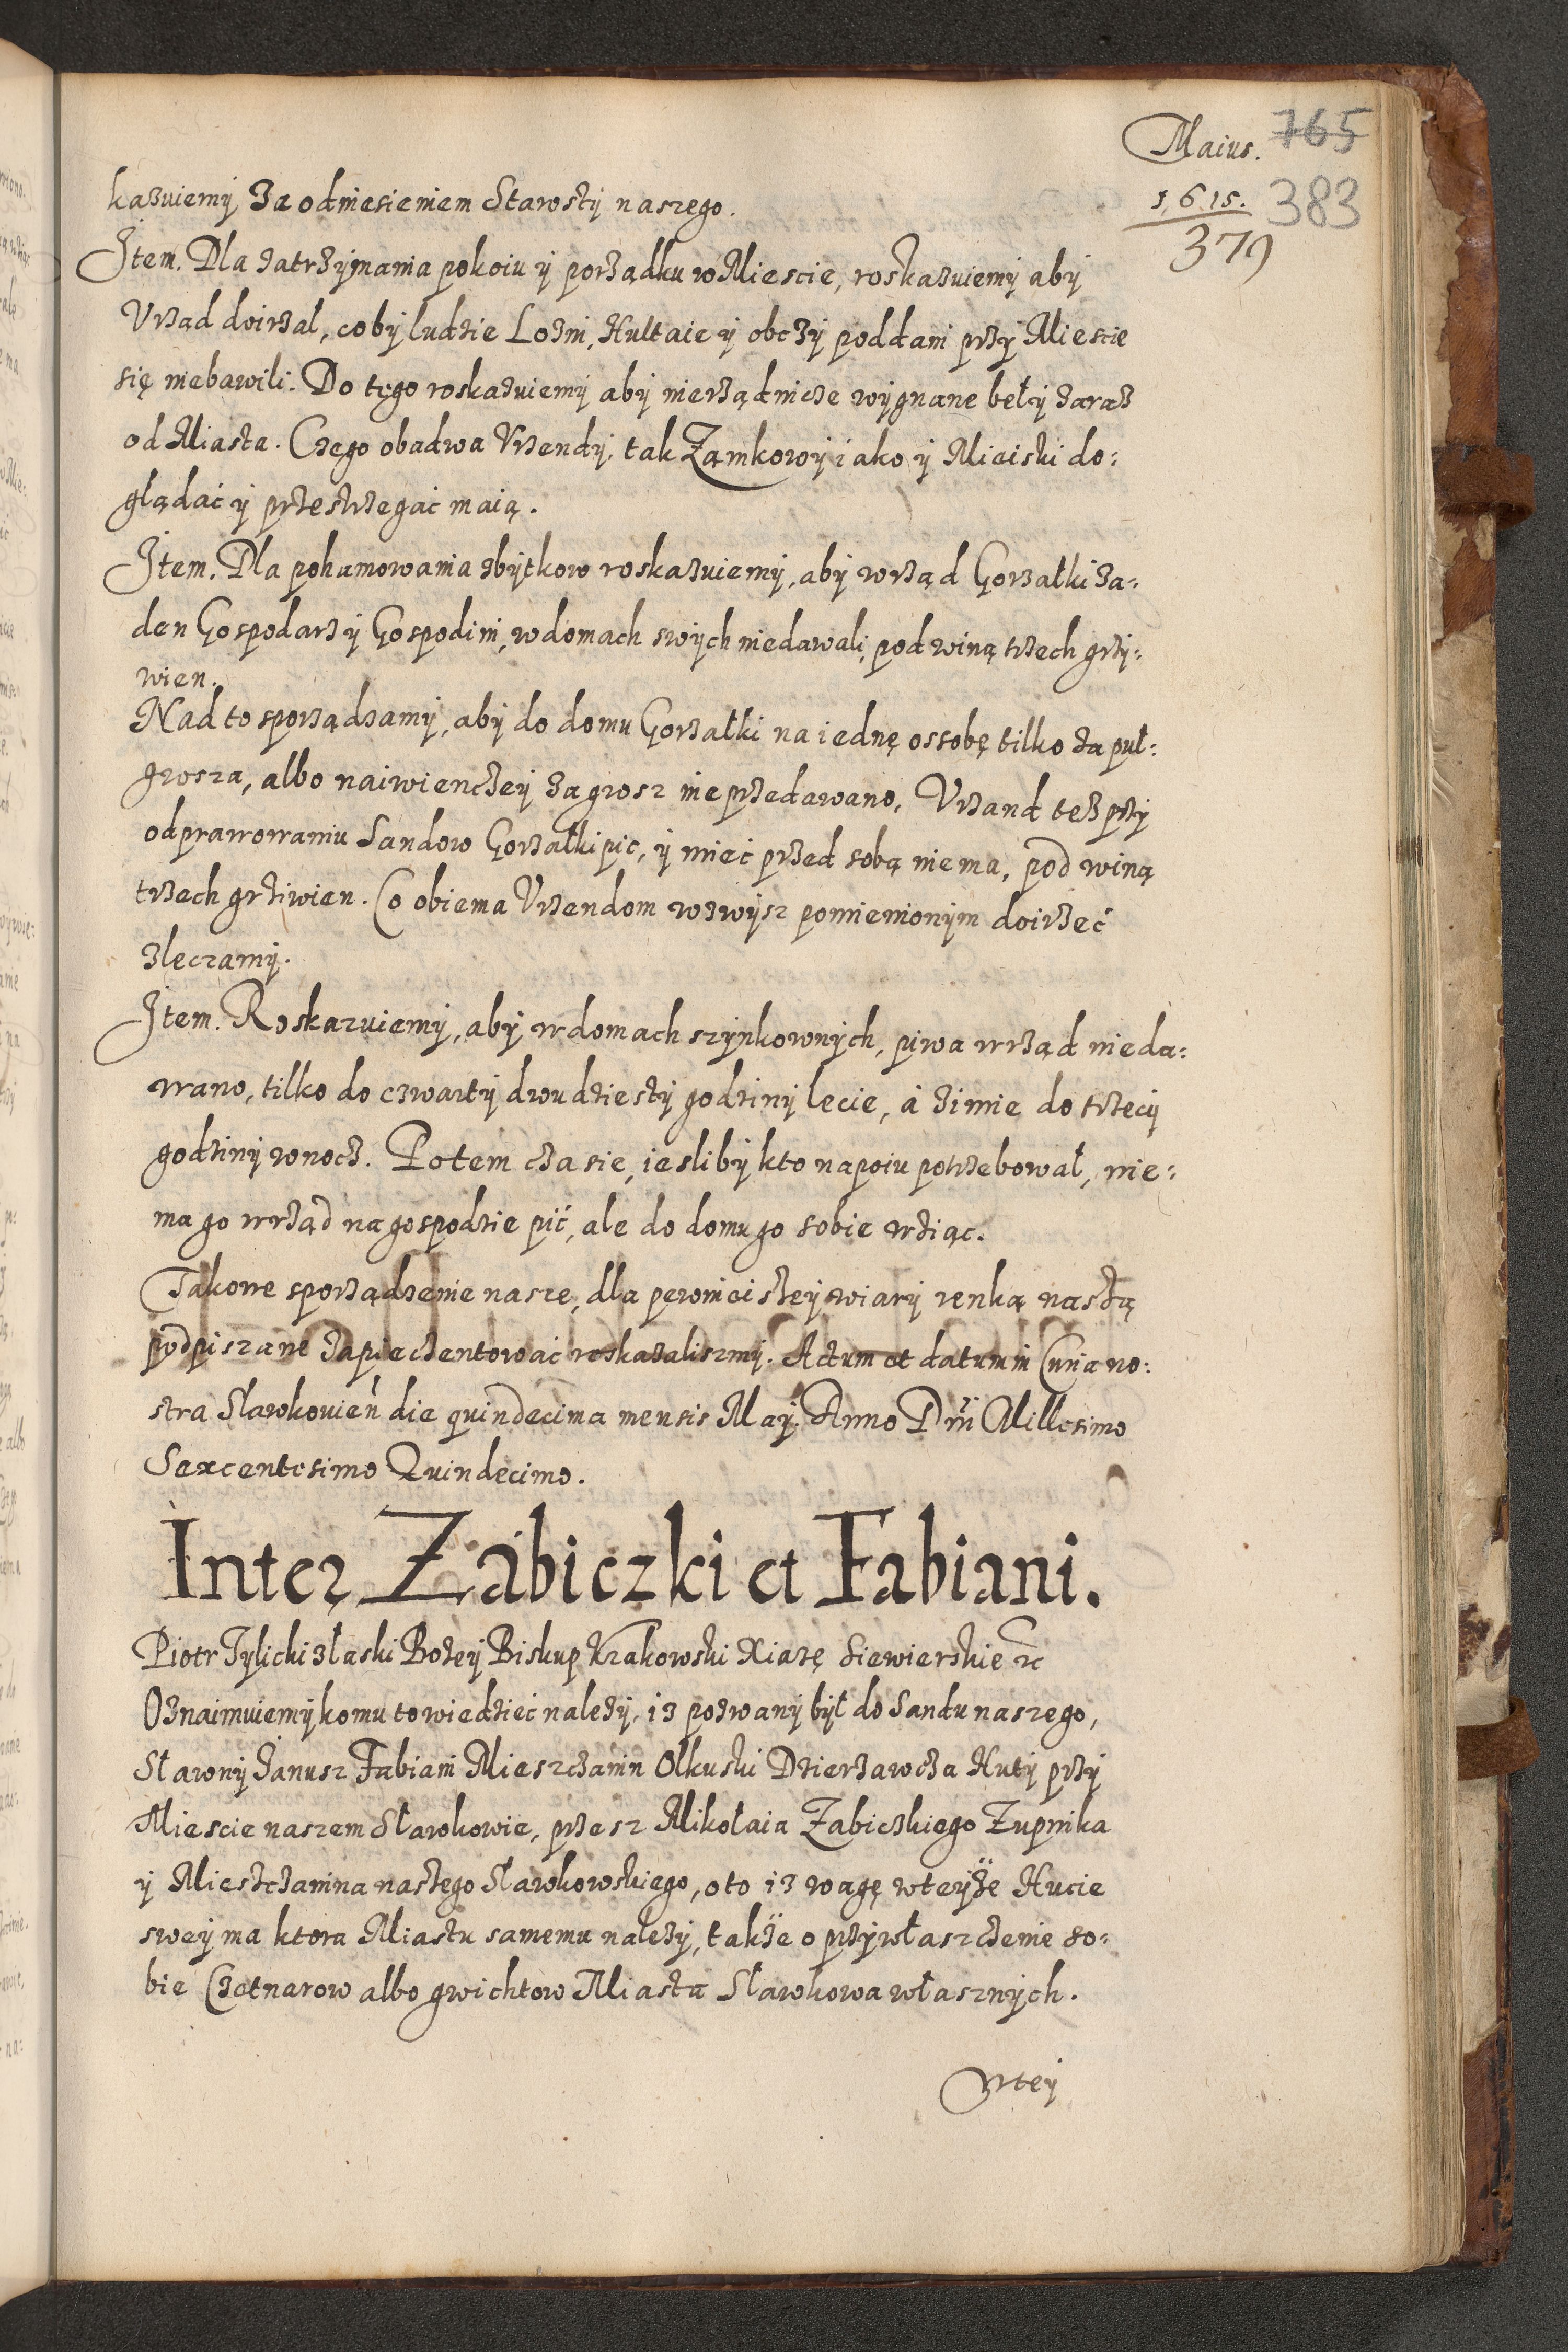 Maius. 765
1.6.15. 383
379
kazuiemy za odniesieniem Starosty naszego.
Item. Dla zatrzymania pokoiu y porządku w Miescie, roskazuiemy aby
Vrząd doirzal, coby ludzie Lozni, Hultaie y obczy poddani przy Miescie
się niebawili. Do tego roskazuiemy aby nierządnicze wygnane beły zaraz
od Miasta. Czego obadwa Vrzendy, tak Zamkowy iako y Mieiski do:
glądać y przestrzegac maią.
Item. Dla pohamowania zbytkow roskazuiemy, aby wrząd Gorzałki ża:
den Gospodarz y Gospodini, w domach swych niedawali, pod winą trzech grzy:
wien.
Nad to sporządzamy, aby do domu Gorzałki na iednę ossobę tilko za puł:
grosza, albo naiwienczey za grosz nie przedawano. Vrzand tesz przy
odprawowaniu Sandow Gorzałki pic, y mieć przed sobą nie ma, pod winą
trzech grziwien. Co obiema Vrzendom wzwysz pomienionym doirzeć
zleczamy.
Item. Roskazuiemy, aby w domach szynkownych, piwa wrząd nieda:
wano, tilko do czwarty dwudziesty godziny lecie, à zimie do trzeci
godziny w nocz. Potem czasie, iesliby kto napoiu potrzebował, nie:
ma go wrząd na gospodzie pić, ale do domu go sobie wziąc.
Takowe sporządzenie nasze, dla pewnieiszey wiary renką naszą
podpiszane zapieczentowac roskazaliszmy. Actum et datum in Curia no:
stra Slawkovień die quindecima mensis May. Anno Dni Millesimo
Sexcentesimo Quindecimo.
Inter Zabiczki et Fabiani.
Piotr Tylicki z łaski Bożey Biskup Krakowski Xiążę Siewierskie etc
Oznaimuiemy komu to wiedzieć należy, iz pozwany był do Sandu naszego,
Sławny Janusz Fabiani Mieszczanin Olkuski Dzierzawcza Huty przy
Miescie naszem Sławkowie, przesz Mikołaia Zabiczkiego Zupnika
y Miesczanina naszego Sławkowskiego, oto iz wagę wteyże Hucie
swey ma ktora Miastu samemu należy, także o przywłaszczenie so:
bie Czetnarow albo gwichtow Miasta Sławkowa własznych.
Wtey